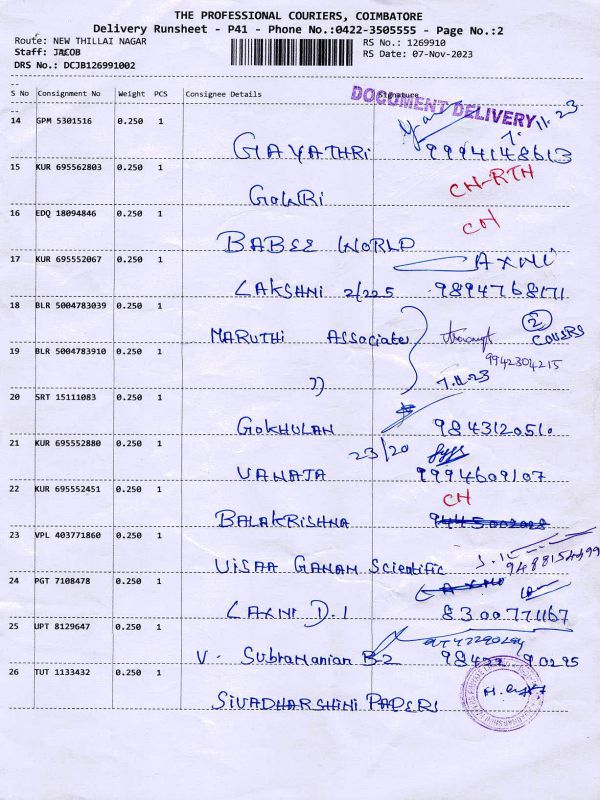 THE PROFESSIONAL COURIERS, COIMBATORE
Delivery Runsheet - P41 - Phone No.:0422-3505555 - Page No.:2
Route: NEW THILLAI NAGAR RS No.: 1269910
Staff: JACOB RS Date: 07-Nov-2023
DRS No.: DCJB126991002
S No Consignment No Weight PCS Consignee Details Signature
DOCUMENT DELIVERY
7.11.23
14 GPM 5301516 0.250 1
GAYATHRI 9994148613
15 KUR 695562803 0.250 1 CH-RTH
GOWRI
16 EDQ 18094846 0.250 1 CH
BABEE WORLD
17 KUR 695552067 0.250 1 LAXMI
LAKSHNI 2/225 9894768171
18 BLR 5004783039 0.250 1
MARUTHI Associate 2 COVERS
19 BLR 5004783910 0.250 1 9942304215
)) 7.11.23
20 SRT 15111083 0.250 1
GOKHULAN 9843120510
21 KUR 695552880 0.250 1 23/20
VANAJA 9994609107
22 KUR 695552451 0.250 1 CH
BALAKRISHNA
23 VPL 403771860 0.250 1
VISAA GANAM Scientific
24 PGT 7108478 0.250 1
LAXNI D.1 8300771167
25 UPT 8129647 0.250 1
V. Subramanian B-2
26 TUT 1133432 0.250 1
SIVADHARSHINI PAPERS